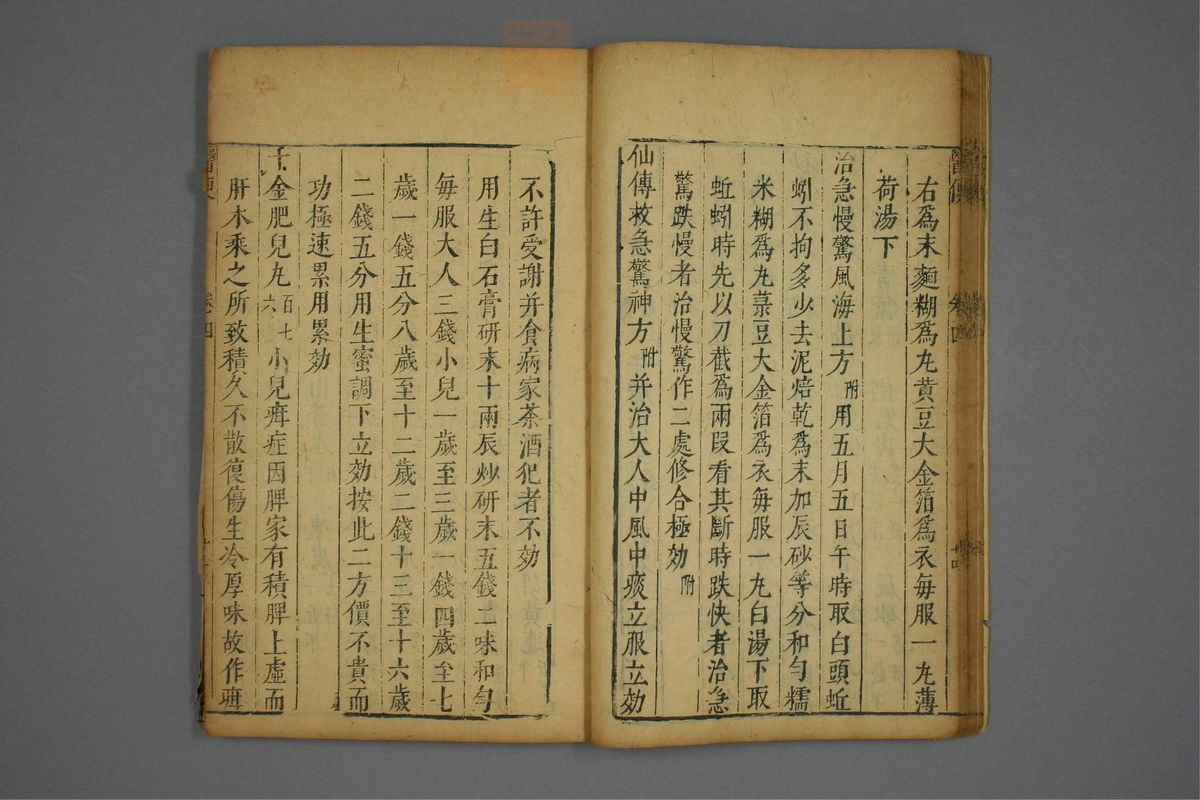 右爲末麵糊爲丸黄豆大金箔爲衣每服一丸薄
荷湯下
治急慢驚風海上方附用五月五日午時取白頭蚯
蚓不拘多少去泥焙乾爲末加辰砂等分和勻糯
米糊爲丸菉豆大金箔爲衣每服一丸白湯下取
蚯蚓時先以刀截爲兩段看其斷時跌快者治急
驚跌慢者治慢驚作二處修合極効附
仙傳救急驚神方附并治大人中風中痰立服立効
不許受謝并食病家茶酒犯者不効
用生白石膏研末十兩辰炒研末五錢二味和勻
每服大人三錢小兒一歲至三歲一錢四歲至七
歲一錢五分八歲至十二歲二錢十三至十六歲
二錢五分用生蜜調下立効按此二方價不貴而
功極速累用累効
十金肥兒丸百七六小兒疳症因脾家有積脾上虛而
肝木乘之所致積久不散復傷生冷厚味故作疳
卷四